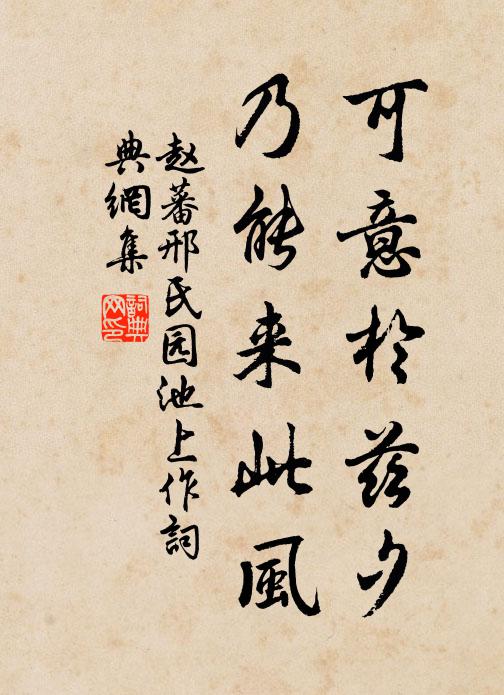 可意於茲夕
乃能来此風
赵蕃邢氏园池上作詞
典網集
詞典
网印